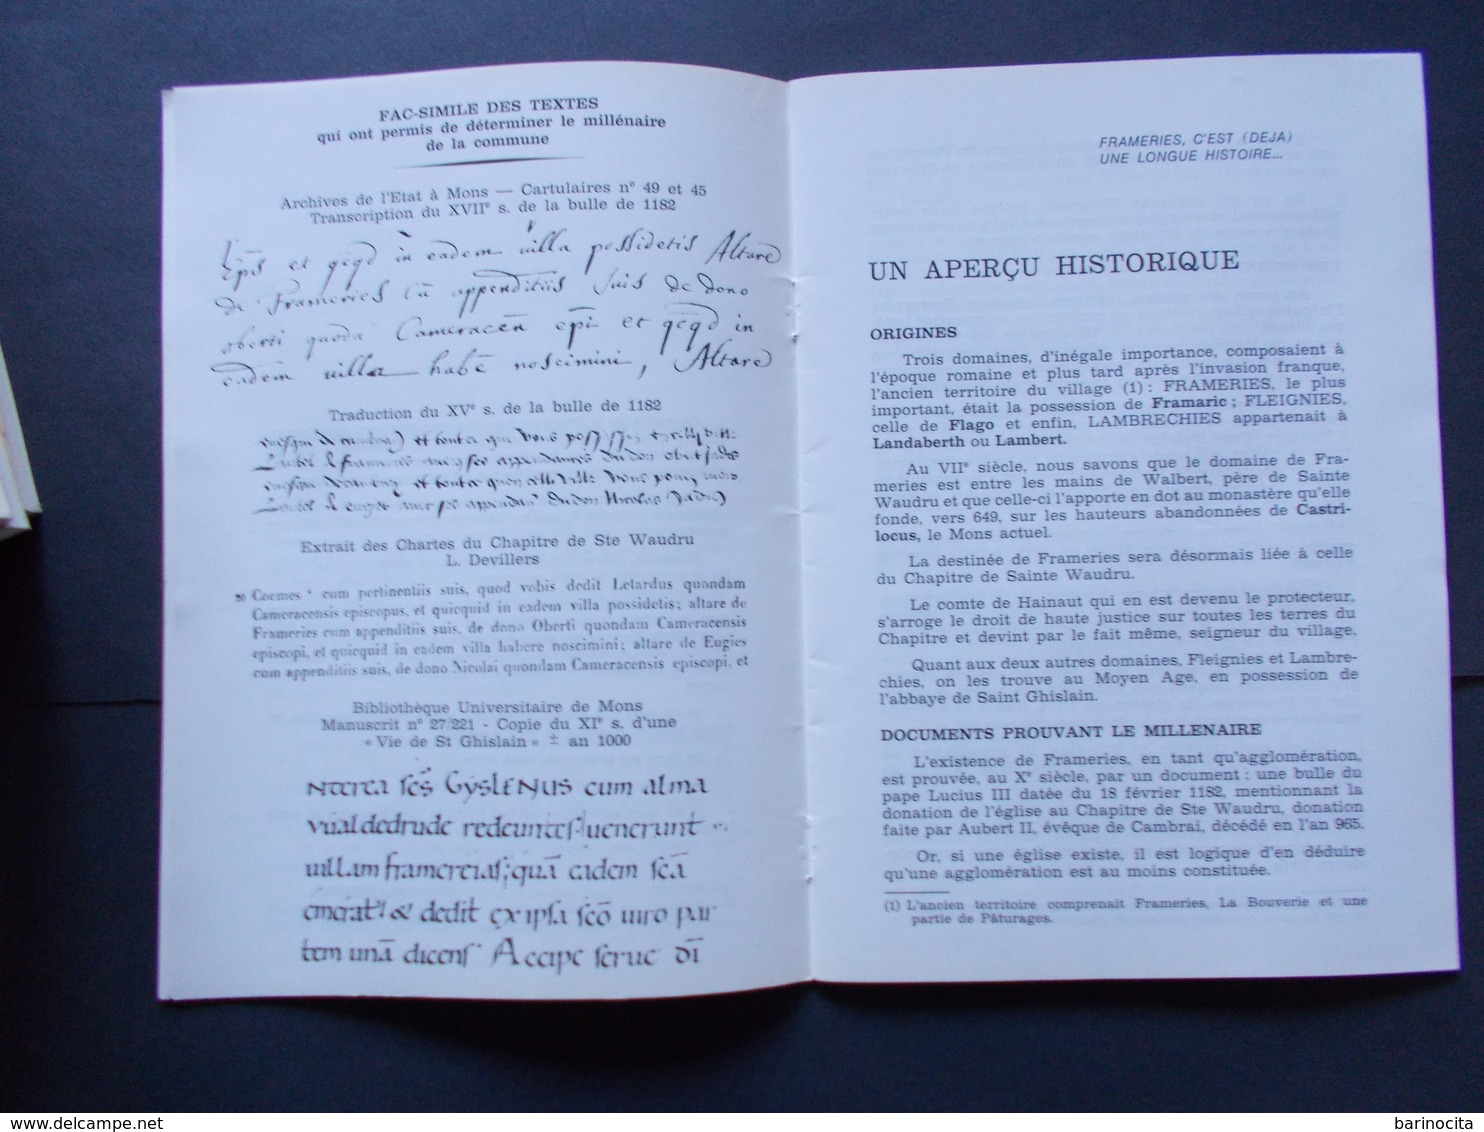 FAC-SIMILE DES TEXTES
qui ont permis de déterminer le millénaire
de la commune
Archives de l'Etat à Mons — Cartulaires n° 49 et 45
Transcription du XVIIe s. de la bulle de 1182
Eps et qcqd in eadem villa possidetis Altare
de Frameries cū appenditiis suis de dono
oberti quoda Cameracēn epi et qcqd in
eadem villa habē noscimini, Altare
Traduction du XVe s. de la bulle de 1182
Extrait des Chartes du Chapitre de Ste Waudru
L. Devillers
20 Coemes cum pertinentiis suis, quod vobis dedit Letardus quondam
Cameracensis episcopus, et quicquid in eadem villa possidetis; altare de
Frameries cum appenditiis suis, de dono Oberti quondam Cameracensis
episcopi, et quicquid in eadem villa habere noscimini; altare de Eugies
cum appenditiis suis, de dono Nicolai quondam Cameracensis episcopi, et
Bibliothèque Universitaire de Mons
Manuscrit n° 27/221 - Copie du XIe s. d'une
« Vie de St Ghislain » ± an 1000
Nterea scs Gyslenus cum alma
vualdedrude redeuntes uenerunt
uillam framereias; quā eadem scā
emerat & dedit ex ipsa scō uiro par
tem unā dicens Accipe serue dī
FRAMERIES, C'EST (DEJA)
UNE LONGUE HISTOIRE...
UN APERÇU HISTORIQUE
ORIGINES
Trois domaines, d'inégale importance, composaient à
l'époque romaine et plus tard après l'invasion franque,
l'ancien territoire du village (1) : FRAMERIES, le plus
important, était la possession de Framaric ; FLEIGNIES,
celle de Flago et enfin, LAMBRECHIES appartenait à
Landaberth ou Lambert.
Au VIIe siècle, nous savons que le domaine de Fra-
meries est entre les mains de Walbert, père de Sainte
Waudru et que celle-ci l'apporte en dot au monastère qu'elle
fonde, vers 649, sur les hauteurs abandonnées de Castri-
locus, le Mons actuel.
La destinée de Frameries sera désormais liée à celle
du Chapitre de Sainte Waudru.
Le comte de Hainaut qui en est devenu le protecteur,
s'arroge le droit de haute justice sur toutes les terres du
Chapitre et devint par le fait même, seigneur du village.
Quant aux deux autres domaines, Fleignies et Lambre-
chies, on les trouve au Moyen Age, en possession de
l'abbaye de Saint Ghislain.
DOCUMENTS PROUVANT LE MILLENAIRE
L'existence de Frameries, en tant qu'agglomération,
est prouvée, au Xe siècle, par un document : une bulle du
pape Lucius III datée du 18 février 1182, mentionnant la
donation de l'église au Chapitre de Ste Waudru, donation
faite par Aubert II, évêque de Cambrai, décédé en l'an 965.
Or, si une église existe, il est logique d'en déduire
qu'une agglomération est au moins constituée.
(1) L'ancien territoire comprenait Frameries, La Bouverie et une
partie de Pâturages.
© www.delcampe.net
barinocita